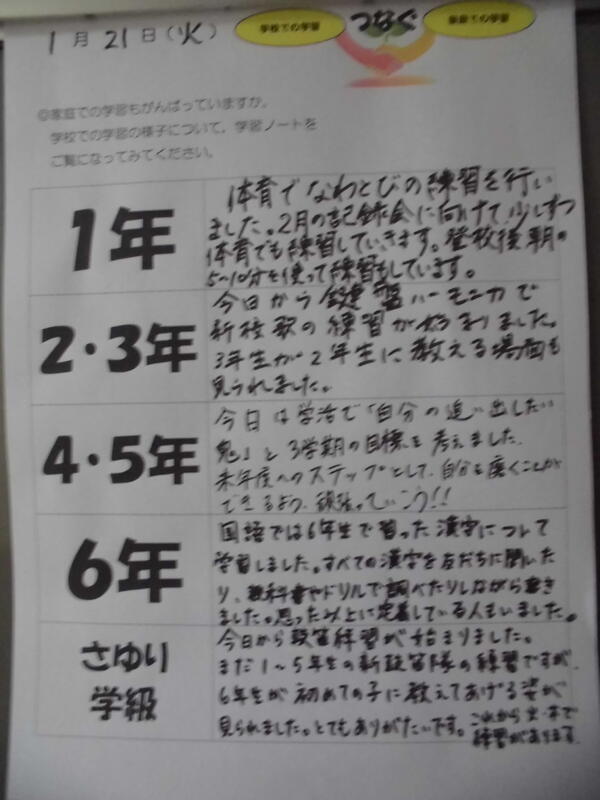 1月21日(火)
学校での学習
つなぐ
家庭での学習
◎家庭での学習もがんばっていますか。
学校での学習の様子について，学習ノートを
ご覧になってみてください。
1年
体育でなわとびの練習を行い
ました。2月の記録会に向けて少しずつ
体育でも練習していきます。登校後朝の
5~10分を使って練習もしています。
2・3年
今日から鍵盤ハーモニカで
新校歌の練習が始まりました。
3年生が2年生に教える場面も
見られました。
4・5年
今日は学活で「自分の追い出したい
鬼」と3学期の目標を考えました。
来年度へのステップとして、自分を磨くことが
できるよう、頑張っていこう!!
6年
国語では6年生で習った漢字について
学習しました。すべての漢字を友だちに聞いた
り、教科書やドリルで調べたりしながら書き
ました。思った以上に定着している人もいました。
さゆり
学級
今日から鼓笛練習が始まりました。
まだ1~5年生の新鼓笛隊の練習ですが、
6年生が初めての子に教えてあげる姿が
見られました。とてもありがたいです。
これから火・木で
練習があります。